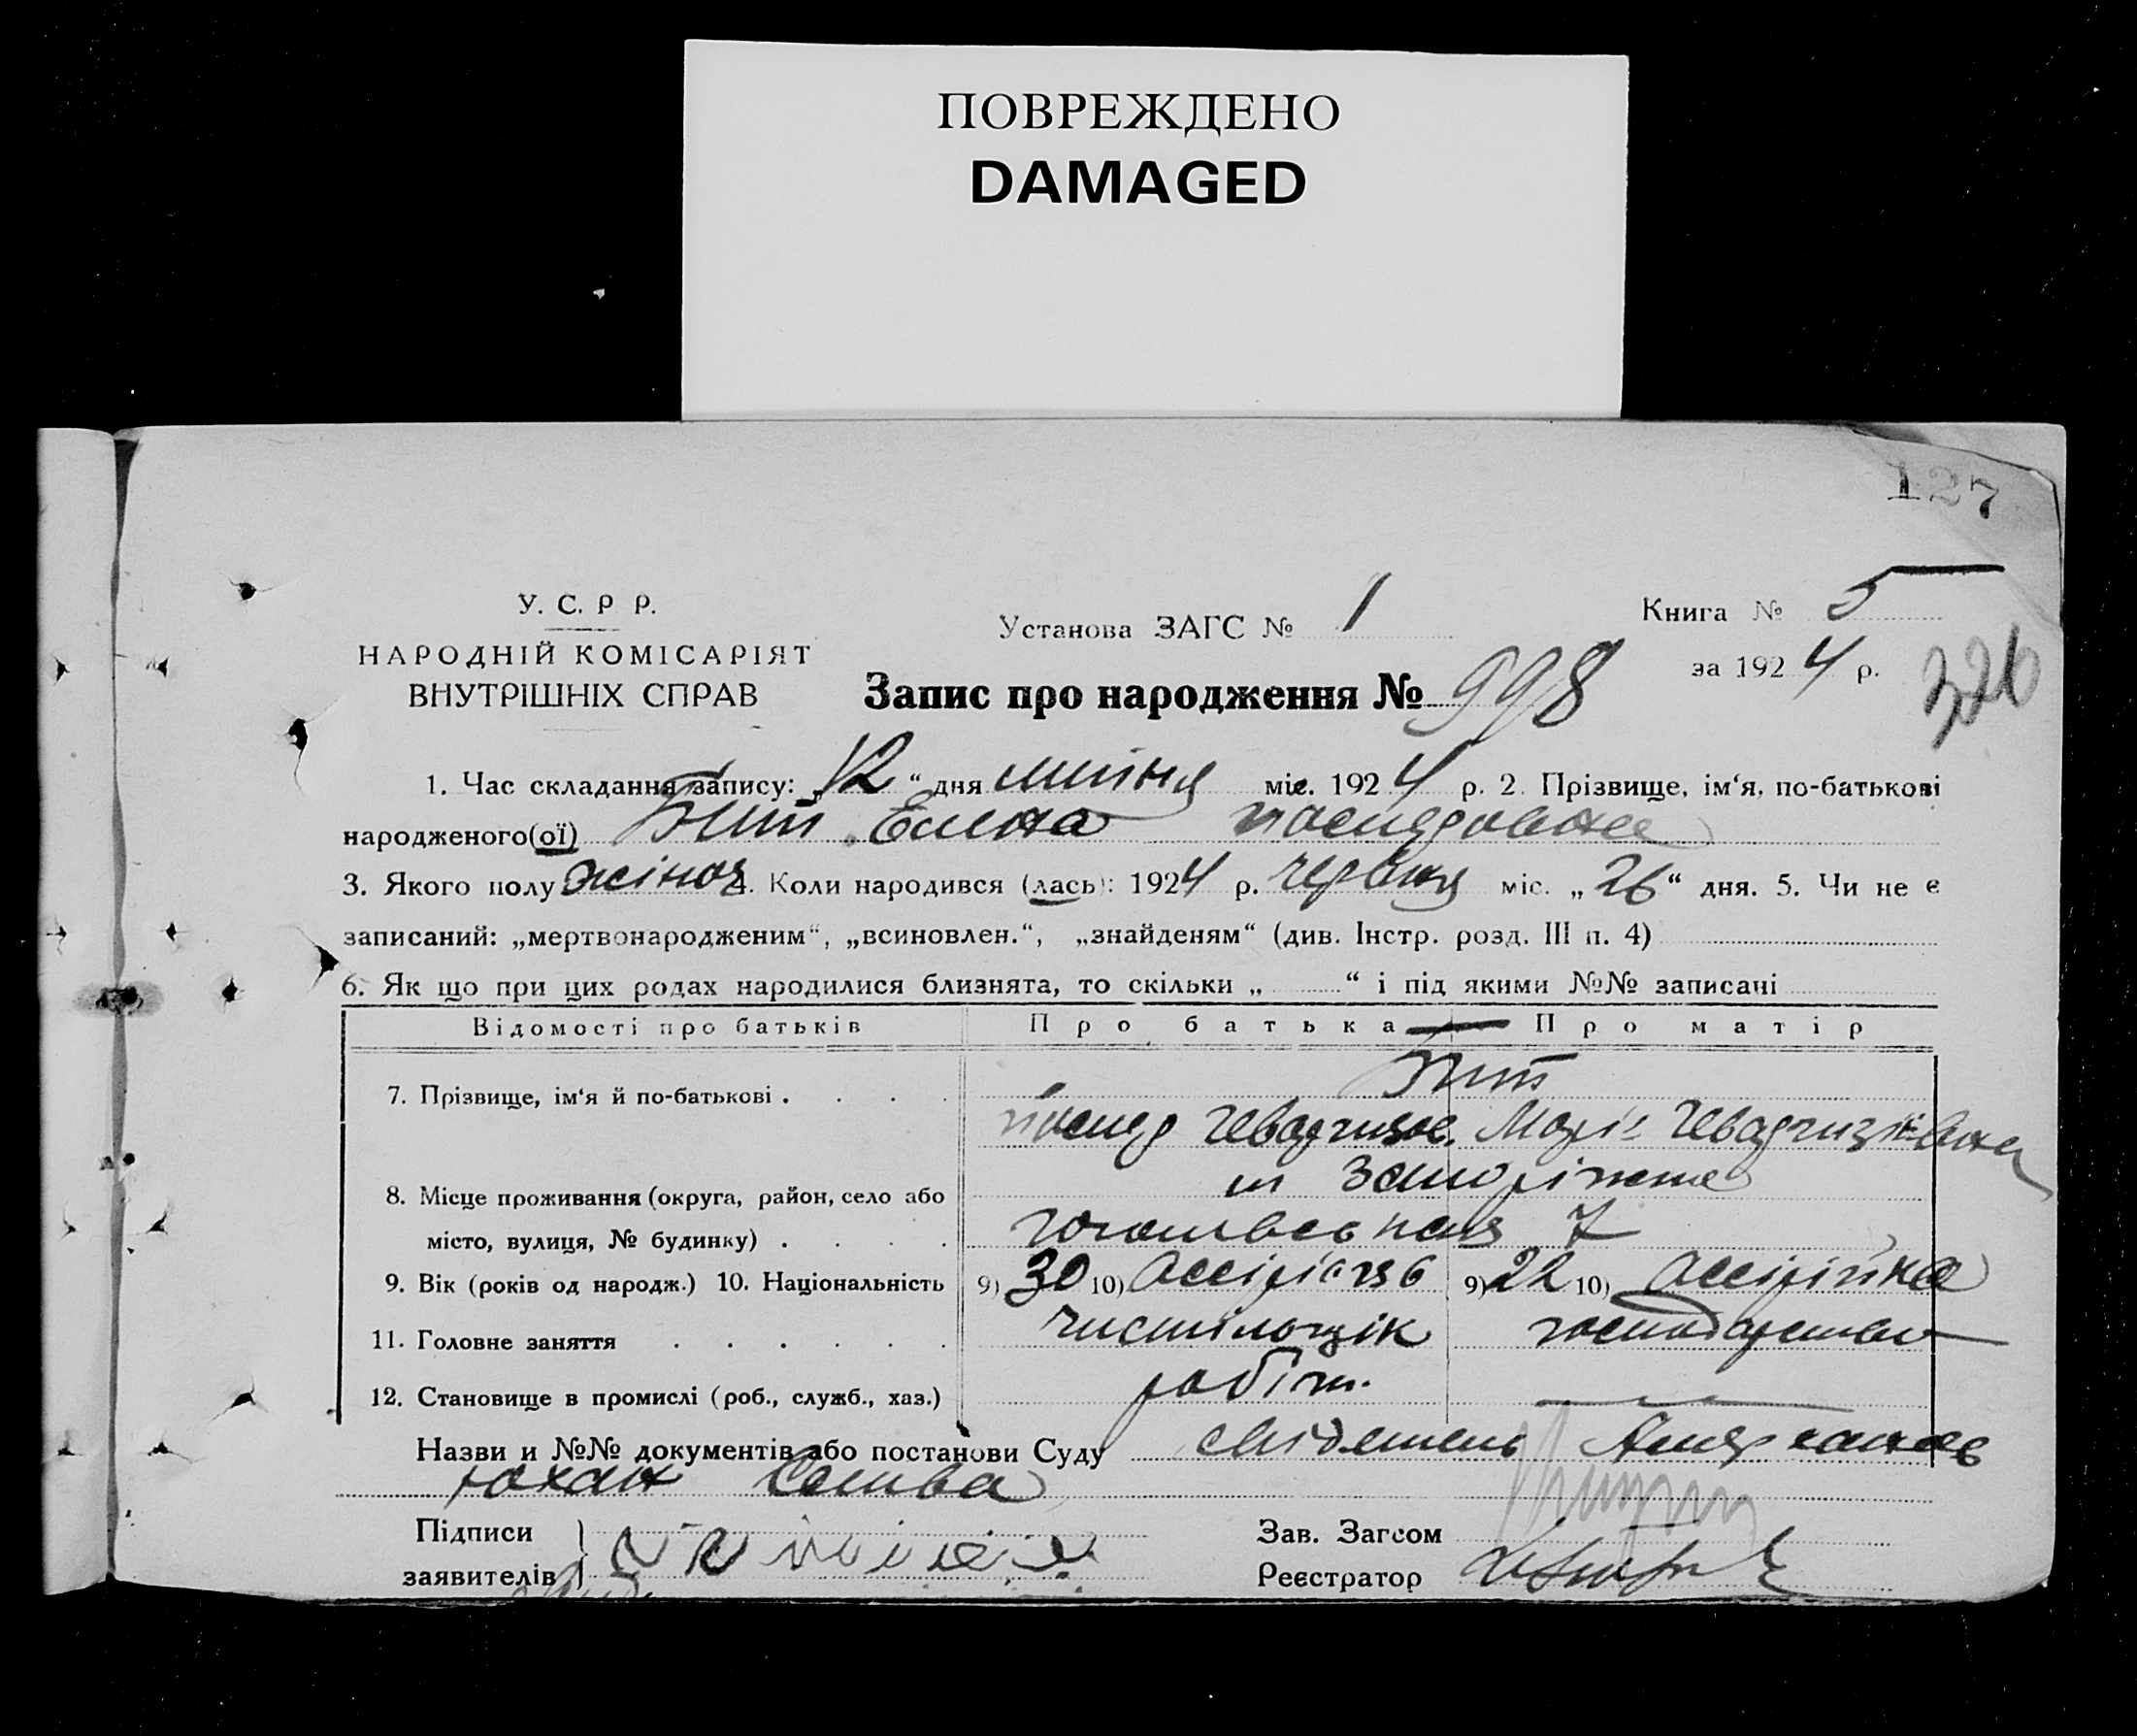 ПОВРЕЖДЕНО
DAMAGED
127
У. С. Р Р.
НАРОДНІЙ КОМІСАРІЯТ
ВНУТРІШНІХ СПРАВ
Установа ЗАГС № 1
Книга № 5
за 1924 р.
326
Запис про народження № 998
1. Час складання запису: „12“ дня липня міс. 1924 р. 2. Прізвище, ім‘я, по-батькові
народженого(ої) Бит Елена
3. Якого полу жіноч 4. Коли народився (лась): 1924 р. червня міс. „26“ дня. 5. Чи не є
записаний: „мертвонародженим“, „всиновлен.“, „знайденям“ (див. Інстр. розд. III п. 4)
6. Як що при цих родах народилися близнята, то скільки „ “ і під якими №№ записані
Відомості про батьків Про батька Про матір
7. Прізвище, ім‘я й по-батькові . . . . Бит
Марія
8. Місце проживання (округа, район, село або м Запоріжже
місто, вулиця, № будинку) . . . . 7
9. Вік (років од народж.) 10. Національність 9) 30 10) 9) 22 10) Ассірійка
11. Головне заняття . . . . . . чистільщік господарство
12. Становище в промислі (роб., служб., хаз.) робітн.
Назви и №№ документів або постанови Суду
Юхан
Підписи
заявителів
Зав. Загсом
Реєстратор